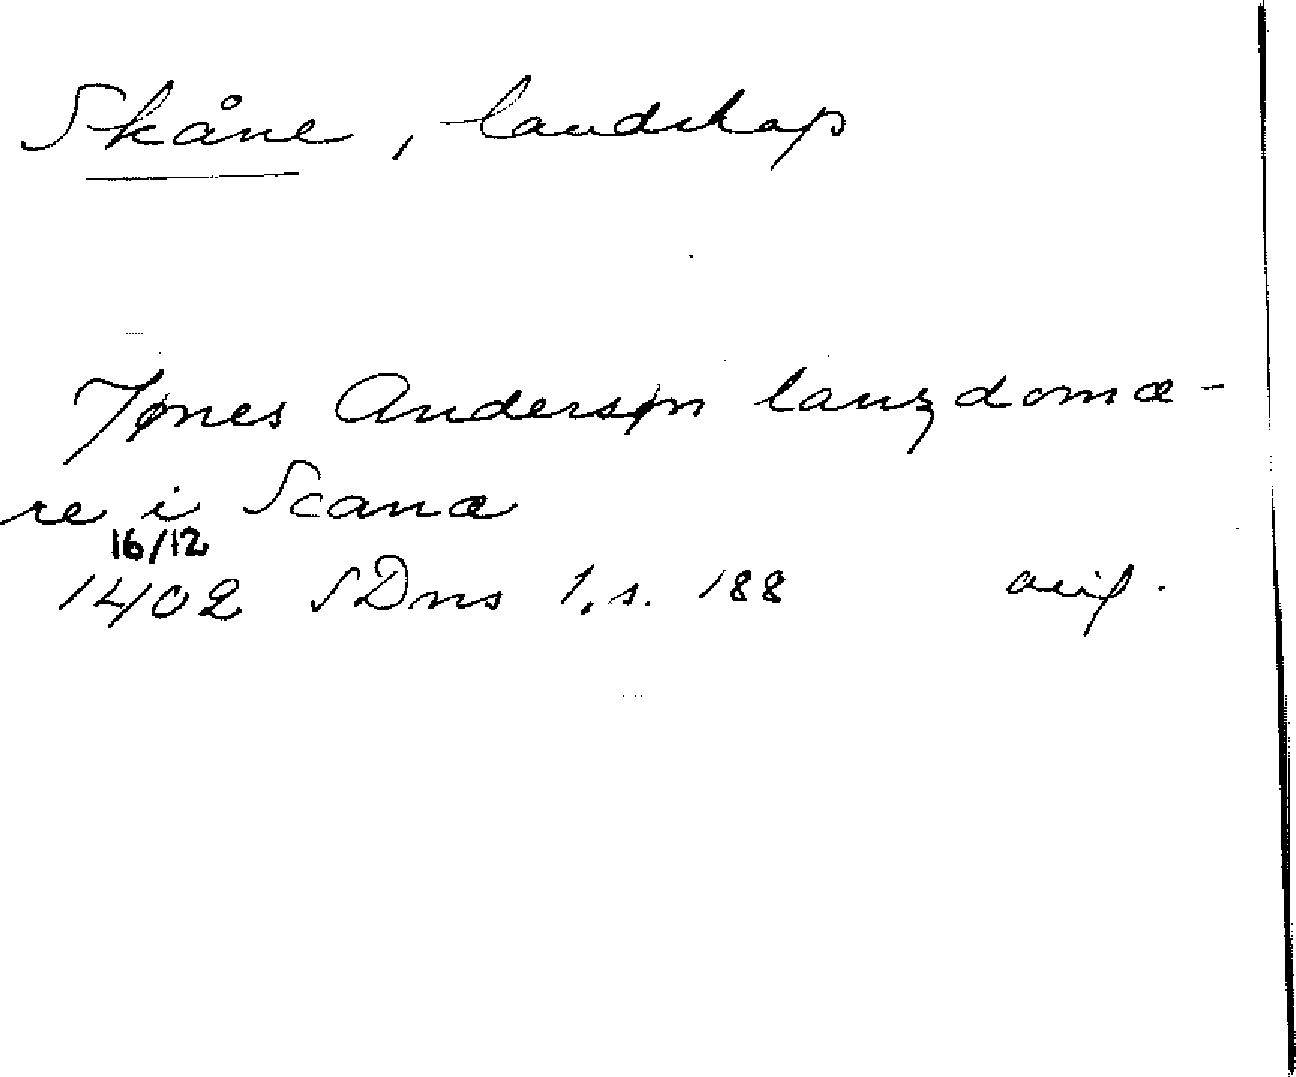 Skåne, landskap
Jønes Andersøn lanzdomæ-
re i Scanæ
16/12
1402 SDns 1, s. 188 avig.